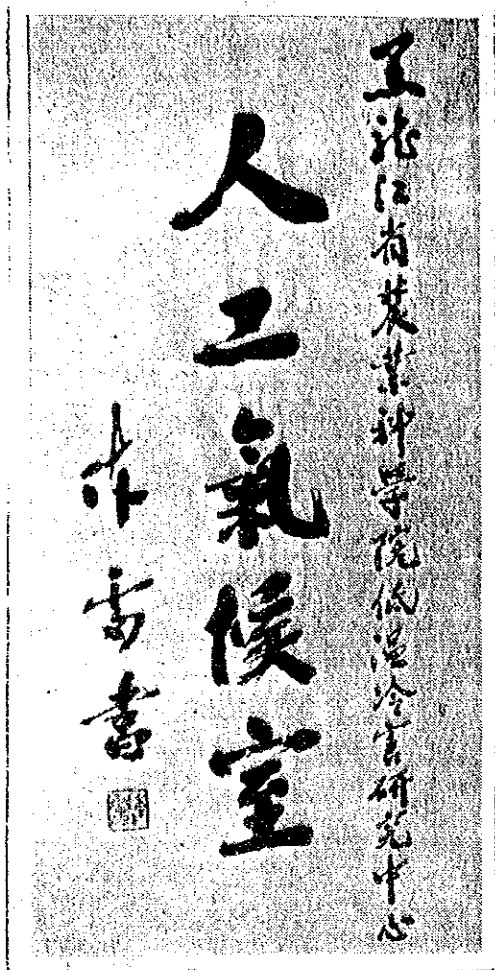 黑龍江省農業科學院低温冷害研究中心
人工氣候室
書